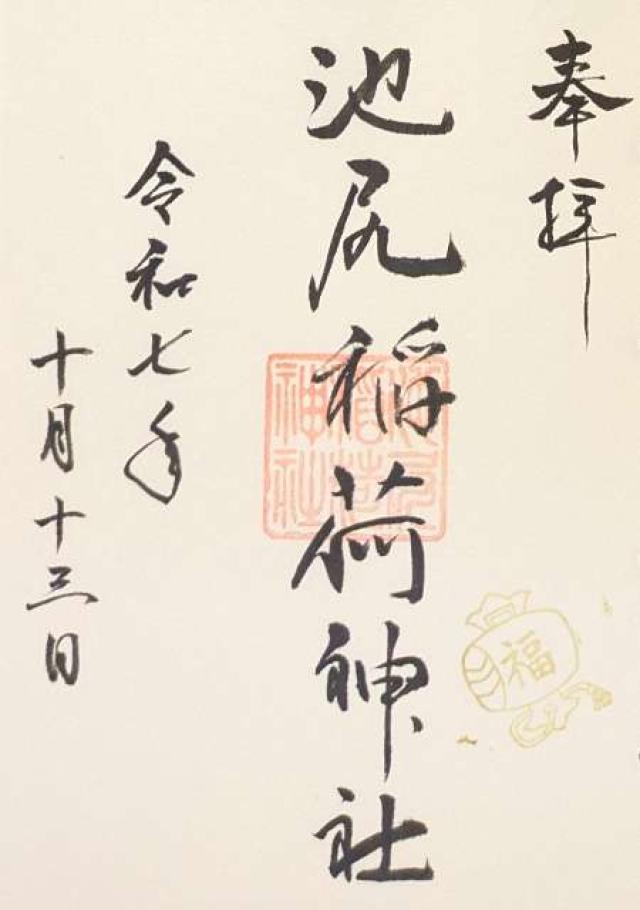 奉拝
池尻稲荷神社
令和七年
十月十三日
池尻
稲荷
神社
福